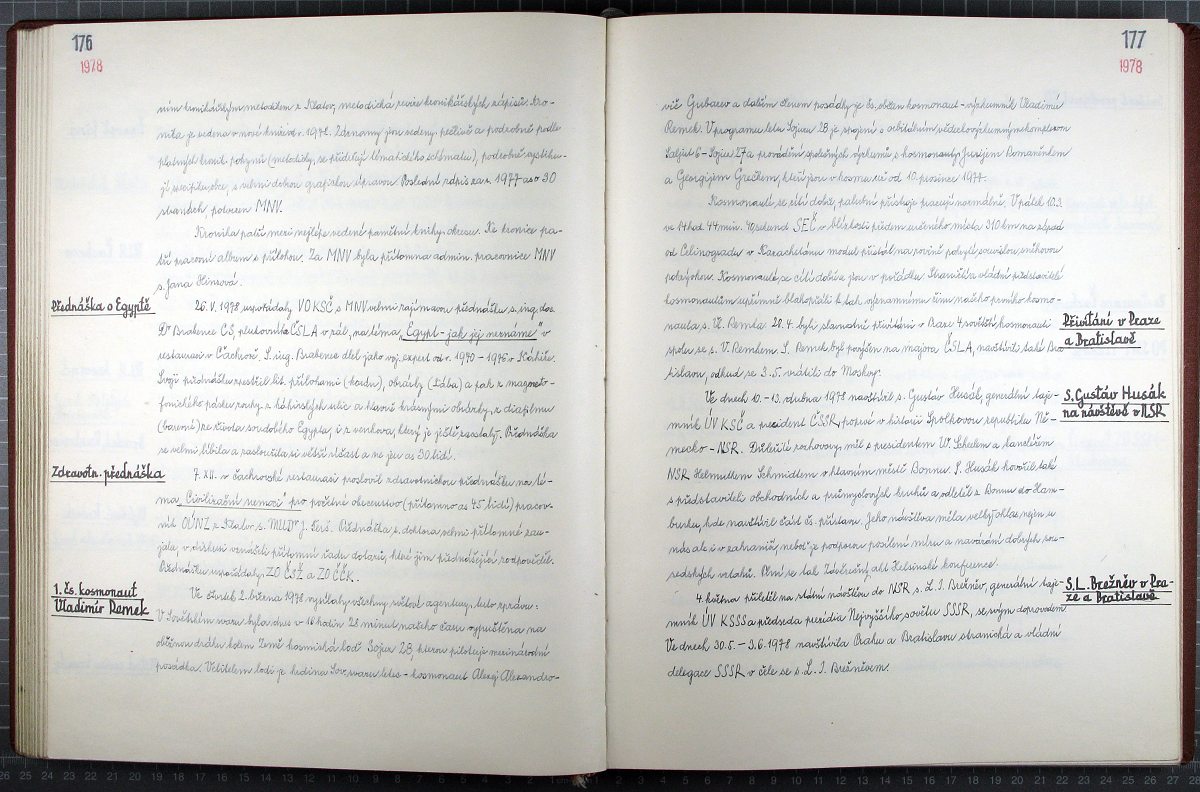 176
1978
ním kronikářským metodikem z Klatov, metodická revize kronikářských zápisů. Kro-
nika je vedena v nové knize v r. 1978. Záznamy jsou vedeny pečlivě a podrobně podle
platných kronik. pokynů (metodiky, se přidržují tématického schématu), podrobně vystihu-
jí specifiku obce, s velmi dobrou grafickou úpravou. Poslední zápis za r. 1977 as o 30
stranách, potvrzen MNV.
Kronika patří mezi nejlépe vedené pamětní knihy okresu. Ke kronice pa-
tří pracovní album s přílohou. Za MNV byla přítomna admin. pracovnice MNV
s. Jana
Přednáška o Egyptě
26. V. 1978 uspořádaly VO KSČ s MNV velmi zajímavou přednášku s. ing. doc.
Dr Brabence CS, plukovníka ČSLA v zál., na téma, "Egypt - jak jej neznáme" v
restauraci v Čachrově. S. ing. Brabenec dlel jako voj. expert od r. 1970 - 1976 v Káhiře.
Svoji přednášku zpestřil lit. přílohami (korán), obrázky (Lába) a pak z magneto-
fonického pásku zvuky z káhirských ulic a hlavně krásnými obrázky, z diafilmu
(barevné) ze života soudobého Egypta, i z venkova, který je ještě zaostalý. Přednáška
se velmi líbila a zasloužila si větší účast a ne jen as 30 lidí.
Zdravotn. přednáška
7. XII. v čachrovské restauraci proslovil zdravotnickou přednášku na té-
ma "Civilizační nemoci" pro početné obecenstvo (přítomno as 45 lidí) pracov-
ník OÚNZ z Klatov s. MUDr J. Přednáška s. doktora velmi přítomné zau-
jala, v diskusi vznášeli přítomní řadu dotazů, které jim přednášející zodpověděl.
Přednášku uspořádaly ZO ČSŽ a ZO ČČK.
1. čs. kosmonaut
Vladimír Remek
Ve čtvrtek 2. března 1978 vysílaly všechny světové agentury, tuto zprávu:
V Sovětském svazu byla dnes v 16 hodin 28 minut našeho času vypuštěna na
oběžnou dráhu kolem Země kosmická loď Sojuz 28, kterou pilotuje mezinárodní
posádka. Velitelem lodi je hrdina Sov. svazu letec - kosmonaut Alexej Alexandro-
177
1978
vič Gubarev a dalším členem posádky je čs. občan kosmonaut - výzkumník Vladimír
Remek. V programu letu Sojuzu 28 je spojení s orbitálním vědeckovýzkumným komplexem
Saljut 6 - Sojuz 27 a provádění společných výzkumů s kosmonauty Jurijem Romaněnkem
a Georgijem Grečkem, kteří jsou v kosmu už od 10. prosince 1977.
Kosmonauti se cítí dobře, palubní přístroje pracují normálně. V pátek 10.3.
ve 14 hod. 44 min. 40 sekund SEČ v blízkosti předem určeného místa 310 km na západ
od Celinogradu v Kazachstánu modul přistál na rovině pokryté souvislou sněhovou
pokrývkou. Kosmonauti se cítí dobře a jsou v pořádku. Straničtí a vládní představitelé
kosmonautům upřímně blahopřáli k tak významnému činu našeho prvního kosmo-
nauta s. V. Remka. 28.4. byli slavnostně přivítáni v Praze 4 sovětští kosmonauti
spolu se s. V. Remkem. S. Remek byl povýšen na majora ČSLA, navštívili také Bra-
tislavu, odkud se 3.5. vrátili do Moskvy.
Přivítání v Praze
a Bratislavě
Ve dnech 10. - 13. dubna 1978 navštívil s. Gustáv Husák, generální taje-
mník ÚV KSČ a president ČSSR, poprvé v historii Spolkovou republiku Ně-
mecko - NSR. Důležité rozhovory měl s presidentem W. Scheelem a kancléřem
NSR Helmuthem Schmidtem v hlavním městě Bonnu. S. Husák hovořil také
s představiteli obchodních a průmyslových kruhů a odletěl z Bonnu do Ham-
burku, kde navštívil část čs. přístavu. Jeho návštěva měla velký ohlas nejen u
nás ale i v zahraničí, neboť je podporou posílení míru a navázání dobrých sou-
sedských vztahů. Plní se tak Závěrečný akt Helsinské konference.
S. Gustáv Husák
na návštěvě v NSR
4. května přiletěl na státní návštěvu do NSR s. L. I. Brežněv, generální taje-
mník ÚV KSSS a předseda prezídia Nejvyššího sovětu SSSR, se svým doprovodem.
Ve dnech 30.5. - 3.6.1978 navštívila Prahu a Bratislavu stranická a vládní
delegace SSSR v čele se s. L. I. Brežněvem.
S. L. Brežněv v Pra-
ze a Bratislavě